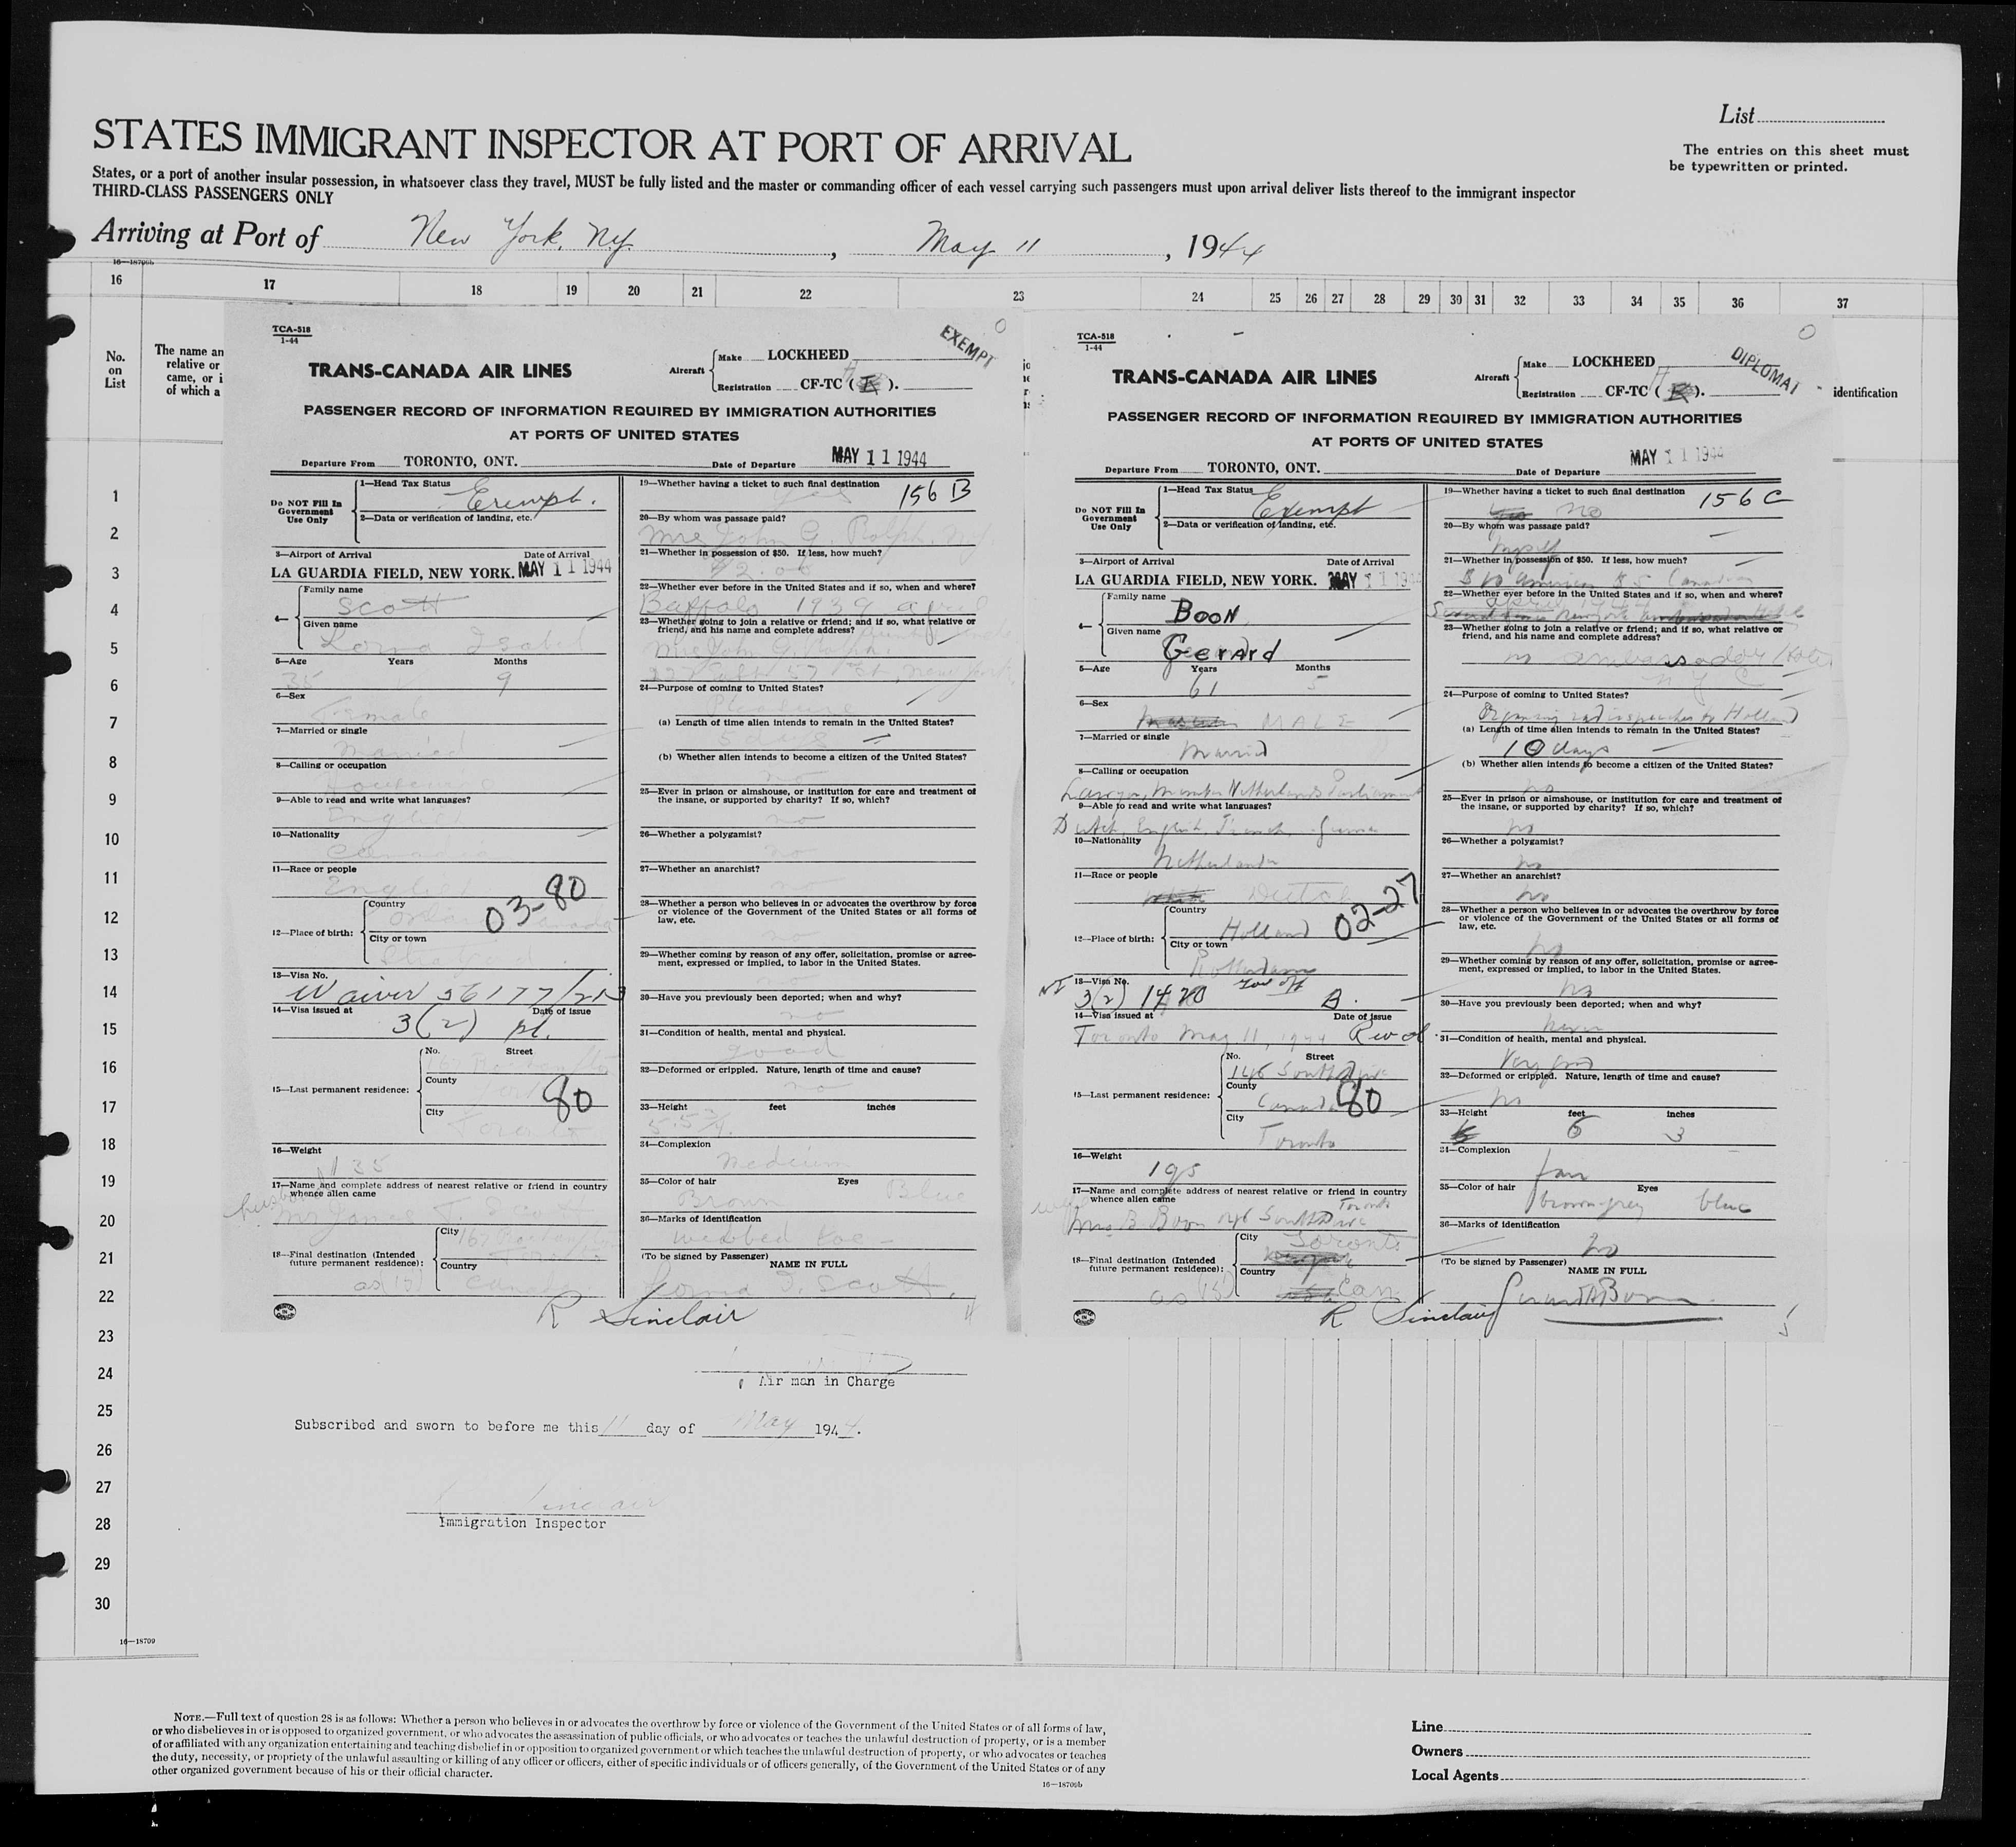 List
STATES IMMIGRANT INSPECTOR AT PORT OF ARRIVAL
The entries on this sheet must
be typewritten or printed.
States, or a port of another insular possession, in whatsoever class they travel, MUST be fully listed and the master or commanding officer of each vessel carrying such passengers must upon arrival deliver lists thereof to the immigrant inspector
THIRD-CLASS PASSENGERS ONLY
Arriving at Port of New York, NY. , May 11 , 1944
16—18709b
16 17 18 19 20 21 22 23 24 25 26 27 28 29 30 31 32 33 34 35 36 37
No.
on
List
The name an
relative or
came, or i
of which a
identification
TCA-518
1-44
EXEMPT
TRANS-CANADA AIR LINES
Aircraft
Make LOCKHEED
Registration CF-TC ( ).
PASSENGER RECORD OF INFORMATION REQUIRED BY IMMIGRATION AUTHORITIES
AT PORTS OF UNITED STATES
Departure From TORONTO, ONT. Date of Departure MAY 11 1944
Do NOT Fill In
Government
Use Only
1—Head Tax Status Exempt.
2—Data or verification of landing, etc.
3—Airport of Arrival Date of Arrival
LA GUARDIA FIELD, NEW YORK. MAY 11 1944
4—
Family name
Scott
Given name
Lorna Isabel
5—Age Years Months
35 9
6—Sex
Female
7—Married or single
Married
8—Calling or occupation
9—Able to read and write what languages?
English
10—Nationality
11—Race or people
English
12—Place of birth:
Country
03-80
City or town
13—Visa No.
Waiver 56177/213
14—Visa issued at Date of issue
3(2) pl.
15—Last permanent residence:
No. Street
County
80
City
Toronto
16—Weight
135
17—Name and complete address of nearest relative or friend in country
whence alien came
husband
Mr James T. Scott
18—Final destination (Intended
future permanent residence):
City
Country
as (15) Canada
19—Whether having a ticket to such final destination
Yes 156 B
20—By whom was passage paid?
Mrs John G. Rolph, N.Y.
21—Whether in possession of $50. If less, how much?
22—Whether ever before in the United States and if so, when and where?
Buffalo 1939 April
23—Whether going to join a relative or friend; and if so, what relative or
friend, and his name and complete address?
Mrs John G. Rolph.
57 St, New York
24—Purpose of coming to United States?
Pleasure
(a) Length of time alien intends to remain in the United States?
5 days
(b) Whether alien intends to become a citizen of the United States?
no
25—Ever in prison or almshouse, or institution for care and treatment of
the insane, or supported by charity? If so, which?
no
26—Whether a polygamist?
no
27—Whether an anarchist?
no
28—Whether a person who believes in or advocates the overthrow by force
or violence of the Government of the United States or all forms of
law, etc.
no
29—Whether coming by reason of any offer, solicitation, promise or agree-
ment, expressed or implied, to labor in the United States.
no
30—Have you previously been deported; when and why?
no
31—Condition of health, mental and physical.
good
32—Deformed or crippled. Nature, length of time and cause?
no
33—Height feet inches
5.5 3/4.
34—Complexion
Medium
35—Color of hair Eyes
Brown Blue
36—Marks of identification
webbed toe -
(To be signed by Passenger)
NAME IN FULL
Lorna I. Scott.
R Sinclair
TCA-518
1-44
DIPLOMAT
TRANS-CANADA AIR LINES
Aircraft
Make LOCKHEED
Registration CF-TC ( ).
PASSENGER RECORD OF INFORMATION REQUIRED BY IMMIGRATION AUTHORITIES
AT PORTS OF UNITED STATES
Departure From TORONTO, ONT. Date of Departure MAY 11 1944
Do NOT Fill In
Government
Use Only
1—Head Tax Status Exempt
2—Data or verification of landing, etc.
3—Airport of Arrival Date of Arrival
LA GUARDIA FIELD, NEW YORK. MAY 11 194
4—
Family name
BOON
Given name
Gerard
5—Age Years Months
61 5
6—Sex
MALE
7—Married or single
Married
8—Calling or occupation
Lawyer, Member Netherlands Parliament
9—Able to read and write what languages?
Dutch, English, French, German
10—Nationality
Netherlands
11—Race or people
Deutch
12—Place of birth:
Country
Holland 02-27
City or town
Rotterdam
13—Visa No.
3(2) 1420 Gov off B.
14—Visa issued at Date of issue
Toronto May 11, 1944
15—Last permanent residence:
No. Street
146 South Drive
County
Canada 80
City
Toronto
16—Weight
195
17—Name and complete address of nearest relative or friend in country
whence alien came
Mrs B Boon 146 South Drive Toronto
18—Final destination (Intended
future permanent residence):
City
Toronto
Country
as (15) Can
19—Whether having a ticket to such final destination
no 156 C
20—By whom was passage paid?
Myself
21—Whether in possession of $50. If less, how much?
22—Whether ever before in the United States and if so, when and where?
23—Whether going to join a relative or friend; and if so, what relative or
friend, and his name and complete address?
no ambassador Hotel
N Y C
24—Purpose of coming to United States?
Organising radiospeeches to Holland
(a) Length of time alien intends to remain in the United States?
10 days
(b) Whether alien intends to become a citizen of the United States?
no
25—Ever in prison or almshouse, or institution for care and treatment of
the insane, or supported by charity? If so, which?
no
26—Whether a polygamist?
no
27—Whether an anarchist?
no
28—Whether a person who believes in or advocates the overthrow by force
or violence of the Government of the United States or all forms of
law, etc.
no
29—Whether coming by reason of any offer, solicitation, promise or agree-
ment, expressed or implied, to labor in the United States.
no
30—Have you previously been deported; when and why?
never
31—Condition of health, mental and physical.
Very good
32—Deformed or crippled. Nature, length of time and cause?
no
33—Height feet inches
6 3
34—Complexion
fair
35—Color of hair Eyes
brown-grey blue
36—Marks of identification
no
(To be signed by Passenger)
NAME IN FULL
R Sinclair
1
2
3
4
5
6
7
8
9
10
11
12
13
14
15
16
17
18
19
20
21
22
23
24
25
26
27
28
29
30
Air man in Charge
Subscribed and sworn to before me this 11 day of May 1944.
Sinclair
Immigration Inspector
16—18709
NOTE.—Full text of question 28 is as follows: Whether a person who believes in or advocates the overthrow by force or violence of the Government of the United States or of all forms of law,
or who disbelieves in or is opposed to organized government, or who advocates the assassination of public officials, or who advocates or teaches the unlawful destruction of property, or is a member
of or affiliated with any organization entertaining and teaching disbelief in or opposition to organized government or which teaches the unlawful destruction of property, or who advocates or teaches
the duty, necessity, or propriety of the unlawful assaulting or killing of any officer or officers, either of specific individuals or of officers generally, of the Government of the United States or of any
other organized government because of his or their official character.
16—18709b
Line
Owners
Local Agents